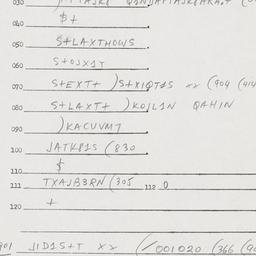 040 $+
050 S+LAXTHOWS
060 S+OJX1T
070 S+EXT+ )S+XIQT1S (904 (414
080 S+LAXT+ )KOJL1N QAHIN
090 )KACUVM7
100 JATK81S (830
110 $
111 TXAJB3RN (305 112 0
120 +
901 JID1S+T X2 (/001020 (366